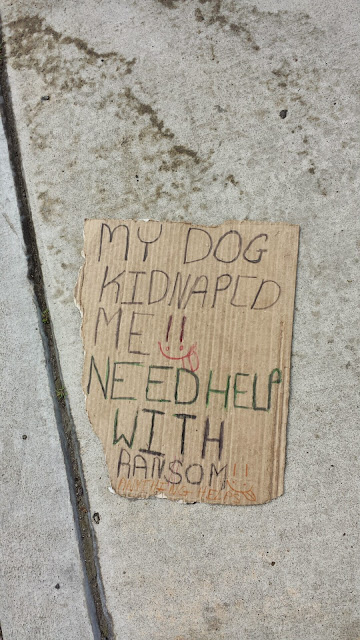 MY DOG
KIDNAPED
ME!!
NEED HELP
WITH
RANSOM!!